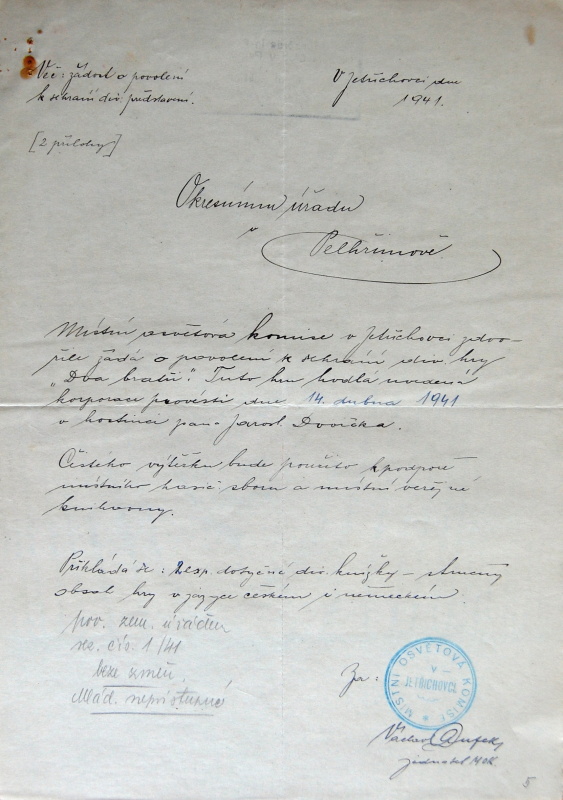 Věc: žádost o povolení
k sehrání div. představení.
V Jetřichovci dne
1941.
[2 přílohy]
Okresnímu úřadu
v
Pelhřimově.
Místní osvětová komise v Jetřichovci zdvo-
řile žádá o povolení k sehrání div. hry
„Dva bratři". Tuto hru hodlá uvedená
korporace provésti dne 14. dubna 1941
v hostinci pana Jarosl. Dvořáka.
Čistého výtěžku bude použito k podpoře
místního hasič. sboru a místní veřejné
knihovny.
Přikládá se: 2 exp. dotyčné div. knížky – stručný
obsah hry v jazyce českém i německém.
pov. zem. úřadem
sez. čís. 1/41
beze změn.
Mlád. nepřístupné
Za:
MÍSTNÍ OSVĚTOVÁ KOMISE
V
JETŘICHOVCI
Václav
jednatel MOK.
5